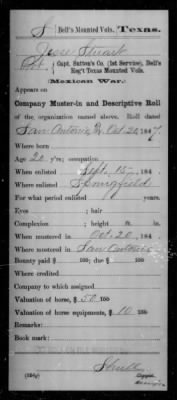 S | Bell's Mounted Vols. | Texas.
Jesse Stuart
Pvt., Capt. Sutton's Co. (1st Service), Bell's
Reg't Texas Mounted Vols.
(Mexican War.)
Appears on
Company Muster-in and Descriptive Roll
of the organization named above. Roll dated
San Antonio, Oct. 20, 1847.
Where born
Age 20 y'rs; occupation
When enlisted Sept. 15, 184
Where enlisted Springfield
For what period enlisted years.
Eyes ; hair
Complexion ; height ft. in.
When mustered in Oct. 20, 184
Where mustered in San Antonio
Bounty paid $ 100; due $ 100
Where credited
Company to which assigned
Valuation of horse, $ 50 100
Valuation of horse equipments, $ 10 100
Remarks:
Book mark:
Copyist.